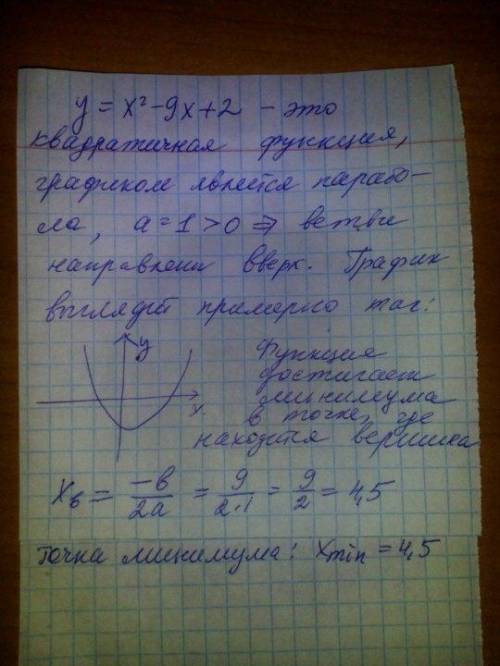 y = x² - 9x + 2 - это
квадратичная функция,
графиком явлется парабо-
ла, a = 1 > 0 ⇒ ветви
направлены вверх. График
выглядит примерно так:
y
x
Функция
достигает
минимума
в точке, где
находится вершина
Xв = -в/2a = 9/2·1 = 9/2 = 4,5
Точка минимума: Xmin = 4,5